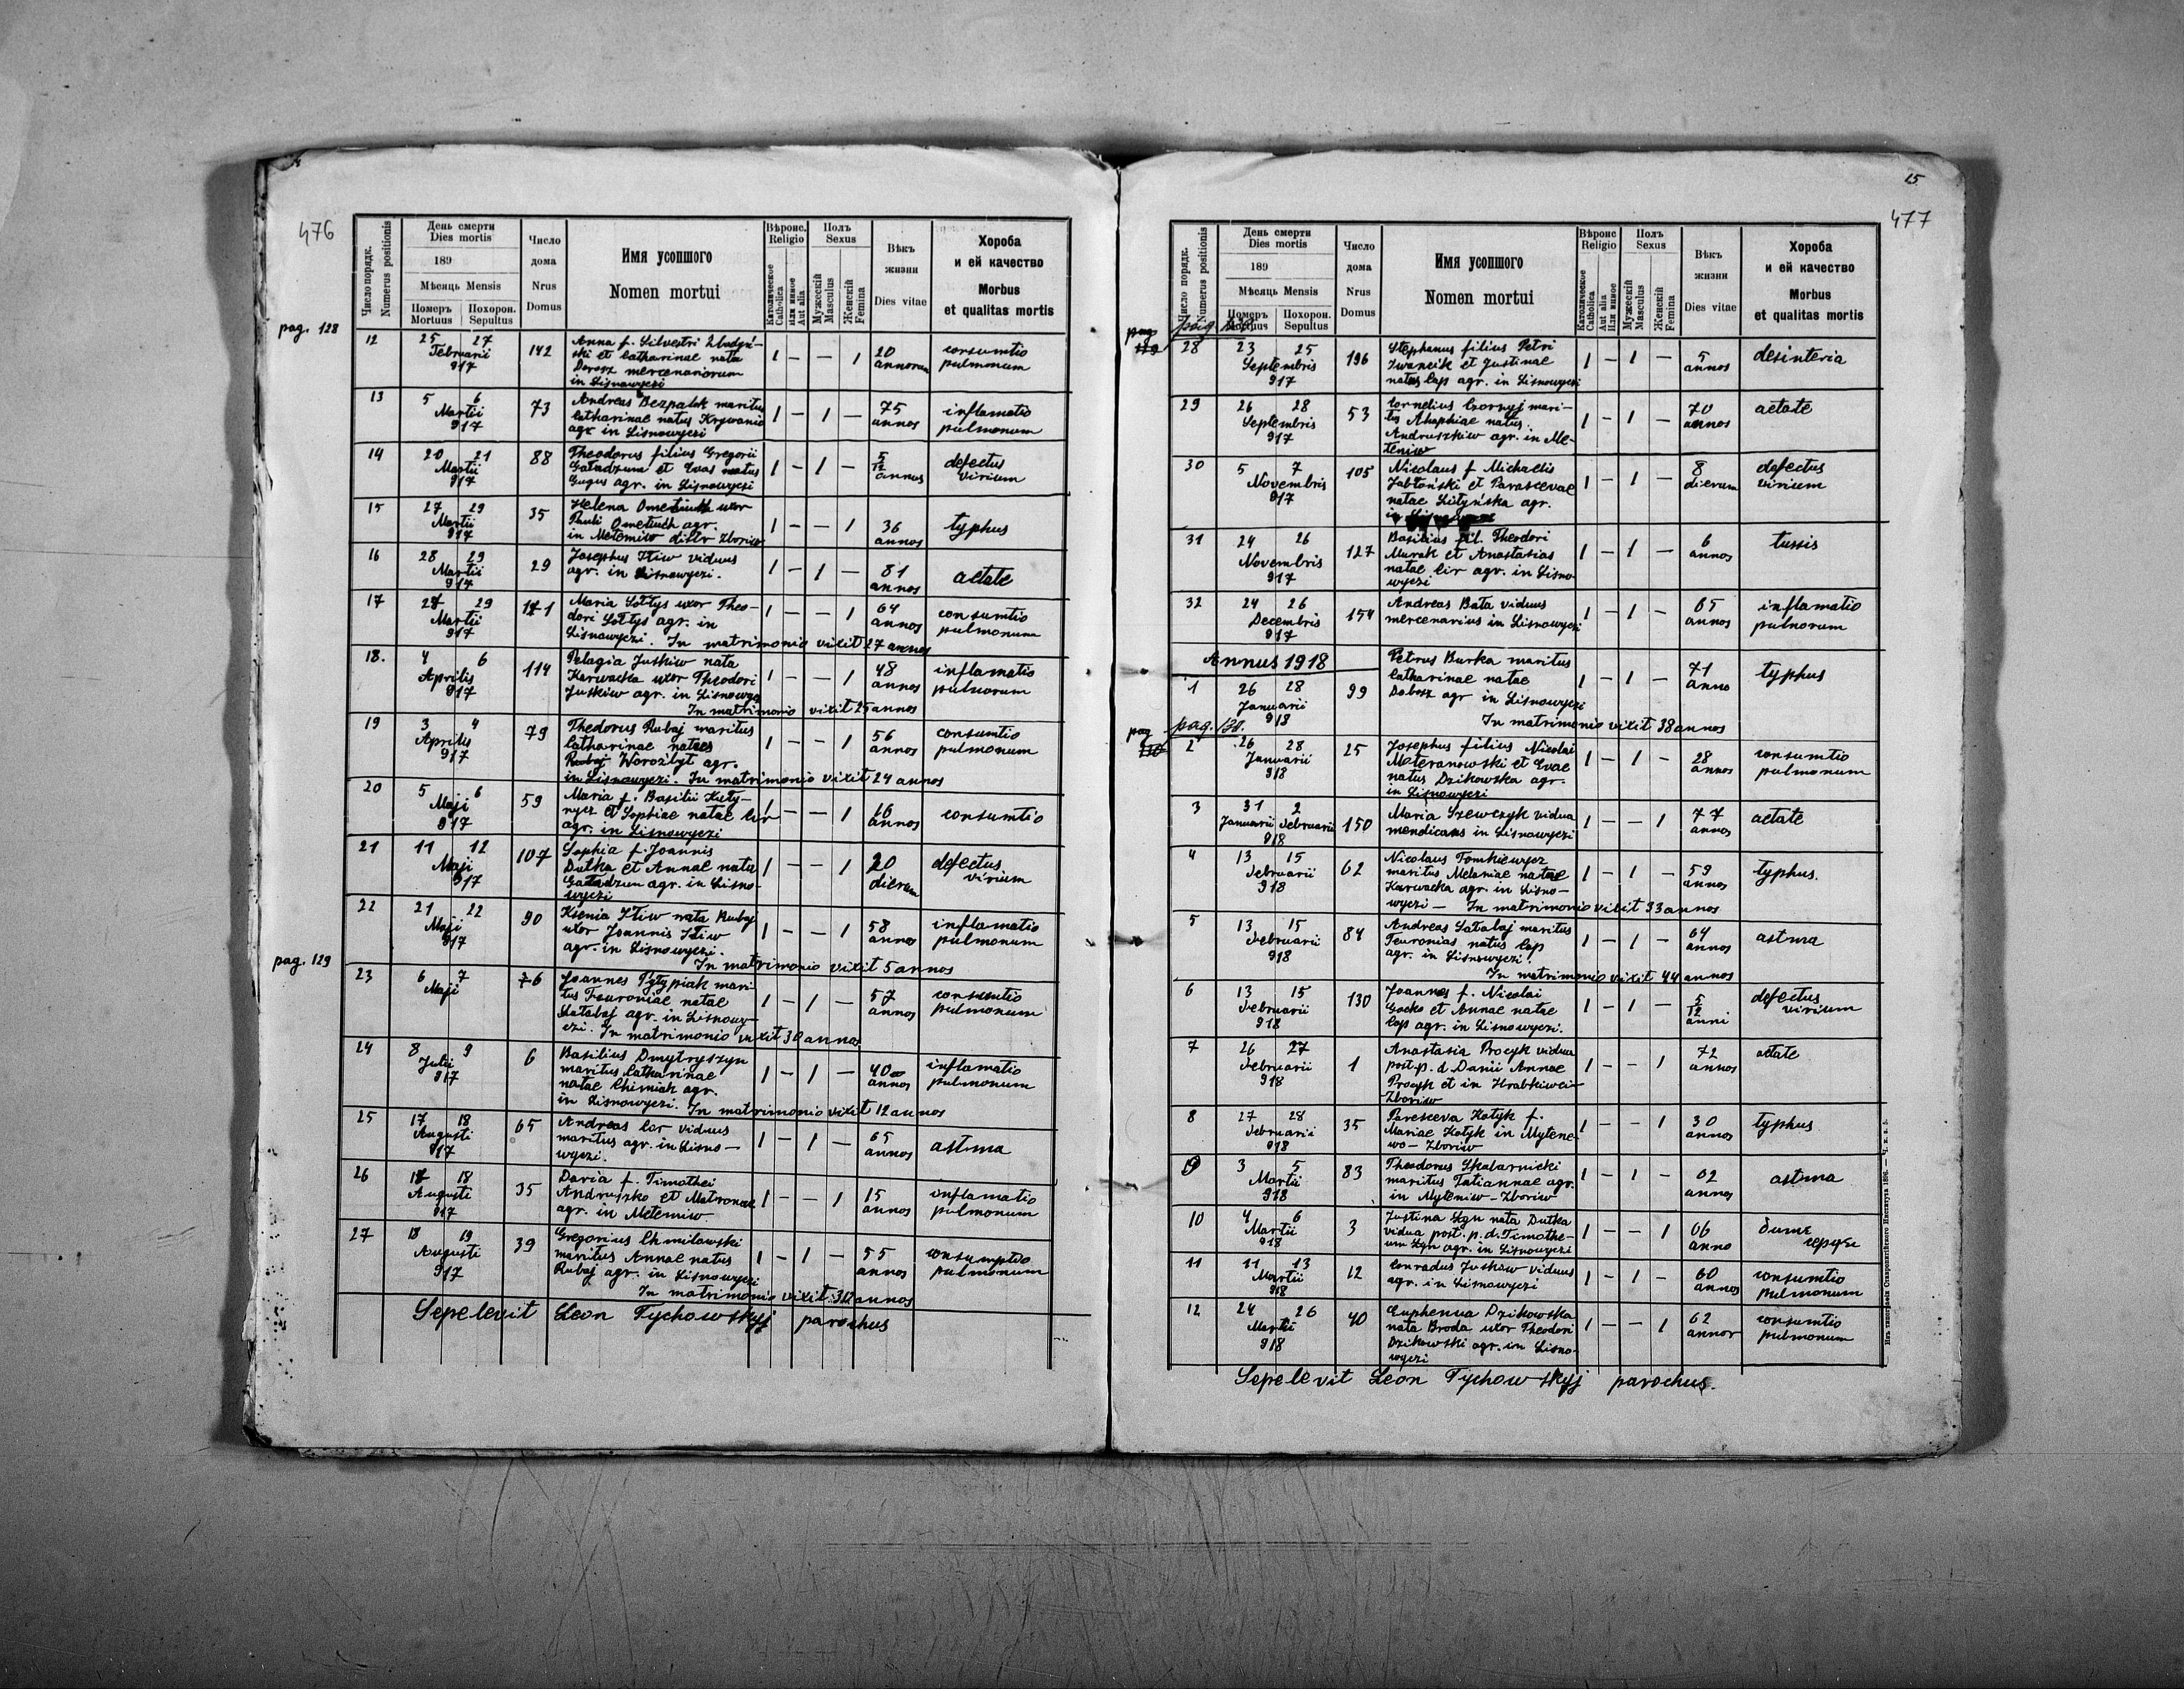 476
Число порядк.
Numerus positionis
День смерти
Dies mortis
189
Мѣсяць Mensis
Померъ
Mortuus
Похорон.
Sepultus
Число
дома
Nrus
Domus
Имя усопшого
Nomen mortui
Вѣроис.
Religio
Католическое
Catholica
Или инное
Aut alia
Полъ
Sexus
Мужескій
Masculus
Женскій
Femina
Вѣкъ
жизни
Dies vitae
Хороба
и ей качество
Morbus
et qualitas mortis
pag. 128
12 25 27 Februarii 917 142
Anna f. Silvestri
ski et Catharinae nata
Dorosz mercenariorum
in Lisnowyczi
1 – – 1 20 annorum consumtio pulmonum
13 5 6 Martii 917 73
Andreas Bezpalek maritus
Catharinae natus Krywania
agr in Lisnowyczi
1 – 1 – 75 annos inflamatio pulmonum
14 20 21 Martii 917 88
Theodorus filius Gregorii
Gaładzun et Evas natus
Gugus agr. in Lisnowyczi
1 – 1 – 5/12 annus defectus virium
15 27 29 Martii 917 35
Helena Ometiuch uxor
Pauli Ometiuch agr.
in Meteniw distr Zboriw
1 – – 1 36 annos typhus
16 28 29 Martii 917 29
Josephus Iliw viduus
agr. in Lisnowyczi.
1 – 1 – 81 annos aetate
17 27 29 Martii 917 171
Maria Sołtys uxor Theo-
dori Sołtys agr. in
Lisnowyczi. In matrimonio vixit 27 annos
1 – – 1 64 annos consumtio pulmonum
18. 4 6 Aprilis 917 114
Pelagia Juskiw nata
Karwacka uxor Theodori
Juskiw agr. in Lisnowyczi
In matrimonio vixit 25 annos
1 – – 1 48 annos inflamatio pulmonum
19 3 4 Aprilis 917 79
Thedorus Rubaj maritus
Catharinae nates
Rubaj Worożbyt agr.
in Lisnowyczi. In matrimonio vixit 24 annos
1 – – 1 56 annos consumtio pulmonum
20 5 6 Maji 917 59
Maria f. Basilii Kuty-
nycz et Sophiae natae Cir
agr. in Lisnowyczi
1 – – 1 16 annos consumtio
21 11 12 Maji 917 107
Sophia f. Joannis
Dutka et Annae nata
Gaładzun agr. in Lisno-
wyczi
1 – – 1 20 dierum defectus virium
22 21 22 Maji 917 90
Ksenia Iliw nata Rubaj
uxor Joannis Iliw
agr. in Lisnowyczi.
In matrimonio vixit 5 annos
1 – – 1 58 annos inflamatio pulmonum
pag. 129
23 6 7 Maji 76
Joannes Pytypiak mari-
tus Feuroniae natae
Satabaj agr. in Lisnowy-
czi. In matrimonio vixit 30 annos
1 – 1 – 57 annos consumtio pulmonum
24 8 9 Julii 917 6
Basilius Dmytryszyn
maritus Catharinae
natae Chimiak agr.
in Lisnowyczi. In matrimonio vixit 12 annos
1 – 1 – 40 annos inflamatio pulmonum
25 17 18 Augusti 917 65
Andreas Cor viduus
maritus agr. in Lisno-
wyczi.
1 – 1 – 65 annos astma
26 17 18 Augusti 917 35
Daria f. Timothei
Andruszko et Matronae
agr. in Meteniw
1 – – 1 15 annos inflamatio pulmonum
27 18 19 Augusti 917 39
Gregorius Chmilowski
maritus Annae natus
Rubaj agr. in Lisnowyczi
In matrimonio vixit annos
1 – 1 – 55 annos consumptio pulmonum
Sepelevit Leon Tychowskyj parochus
15
477
Число порядк.
Numerus positionis
День смерти
Dies mortis
189
Мѣсяць Mensis
Померъ
Mortuus
Похорон.
Sepultus
Число
дома
Nrus
Domus
Имя усопшого
Nomen mortui
Вѣроис
Religio
Католическое
Catholica
Aut alia
Или инное
Полъ
Sexus
Мужескій
Masculus
Женскій
Femina
Вѣкъ
жизни
Dies vitae
Хороба
и ей качество
Morbus
et qualitas mortis
pag
28 23 25 Septembris 917 196
Stephanus filius Petri
Iwancik et Justinae
natus Cap agr. in Lisnowyczi
1 – 1 – 5 annos desinteria
29 26 28 Septembris 917 53
Cornelius Czornyj mari-
tus Ahaphiae natus
Andruszkiw agr. in Me-
teniw
1 – 1 – 70 annos aetate
30 5 7 Novembris 917 105
Nicolaus f Michaelis
Jabłoński et Parasceval
natae Lityńska agr.
1 – 1 – 8 dierum defectus virium
31 24 26 Novembris 917 127
Basilius fil. Theodori
Murak et Anastasias
natae Cir agr. in Lisno-
wyczi
1 – 1 – 6 annos tussis
32 24 26 Decembris 917 154
Andreas Bata viduus
mercenarius in Lisnowyczi
1 – 1 – 65 annos inflamatio pulmorum
Annus 1918
1 26 28 Januarii 918 99
Petrus Burka maritus
Catharinae natae
Dobosz agr in Lisnowyczi
In matrimonio vixit 38 annos
1 – 1 – 71 anno typhus
pag pag. 130.
2 26 28 Januarii 918 25
Josephus filius Nicolai
Meteranowski et Evae
natus Dzikowska agr.
in Lisnowyczi
1 – 1 – 28 annos consumtio pulmonum
3 31 2 Januarii Februarii 918 150
Maria Szewczyk vidua
mendicans in Lisnowyczi
1 – – 1 77 annos aetate
4 13 15 Februarii 918 62
Nicolaus Tomkiewycz
maritus Melaniae natae
Karwacka agr. in Lisno-
wyczi – In matrimonio vixit 33 annos
1 – 1 – 59 annos typhus.
5 13 15 Februarii 918 84
Andreas Satabaj maritus
Feuronias natus Cap
agr. in Lisnowyczi.
In matrimonio vixit 44 annos
1 – 1 – 64 annos astma
6 13 15 Februarii 918 130
Joannes f. Nicolai
Gocko et Annae natae
Cap agr. in Lisnowyczi.
1 – 1 – 5/12 anni defectus virium
7 26 27 Februarii 918 1
Anastasia Procyk vidua
post. p. d Danii Annae
Procyk et in Hrabkiwci-
Zboriw
1 – – 1 72 annos aetate
8 27 28 Februarii 918 35
Paresceva Kotyk f.
Mariae Kotyk in Mytene-
wo – Zboriw
1 – – 1 30 annos typhus
9 3 5 Martii 918 83
Theodorus Skalarnicki
maritus Tatiannae agr.
in Myteniw – Zboriw
1 – 1 – 62 annos astma
10 4 6 Martii 918 3
Justina Zgn nata Dutka
vidua post. p. d. Timothe-
um Zgn agr. in Lisnowyczi
1 – – 1 66 anno
11 11 13 Martii 918 12
Conradus Juskiw viduus
agr. in Lisnowyczi
1 – 1 – 60 annos consumtio pulmonum
12 24 26 Martii 918 40
Euphemia Dzikowska
nata Broda uxor Theodori
Dzikowski agr. in Lisno-
wyczi
1 – – 1 62 annor consumtio pulmonum
Sepelevit Leon Tychowskyj parochus.
Изъ типографіи Ставропигійского Института 1896.